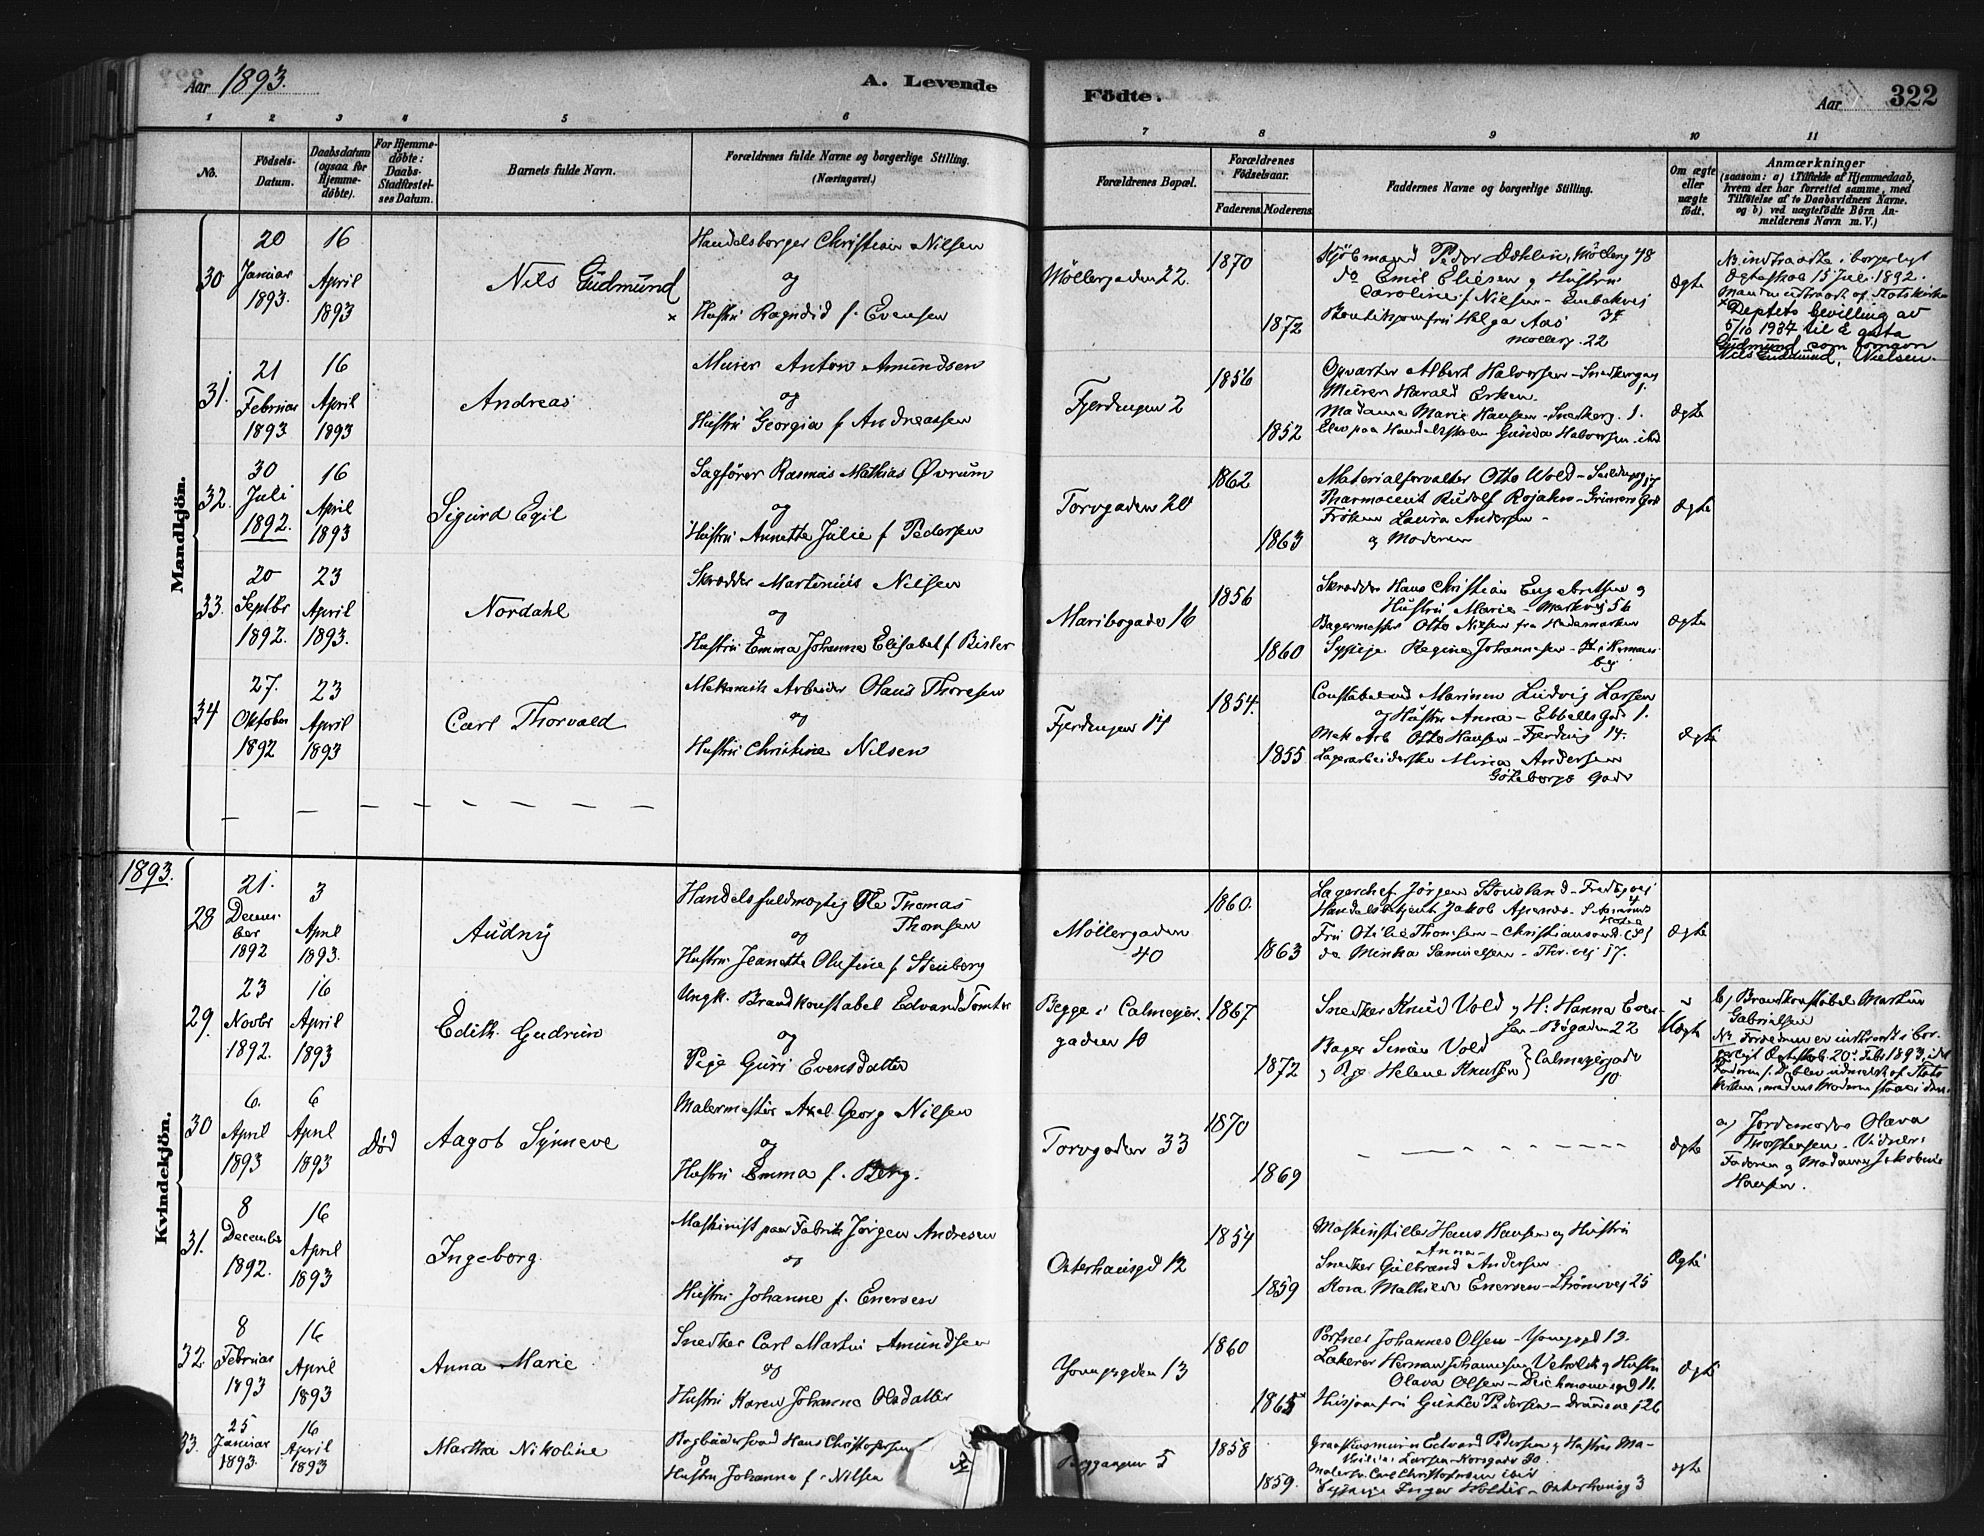 Aar 1893.
A. Levende
Födte.
Aar
322
1 2 3 4 5 6 7 8 9 10 11
No.
Födsels-
Datum.
Daabsdatum
(ogsaa for
Hjemme-
döbte).
For Hjemme-
döbte:
Daabs-
Stadfæstel-
ses Datum.
Barnets fulde Navn.
Forældrenes fulde Navne og borgerlige Stilling.
(Næringsvei.)
Forældrenes Bopæl.
Forældrenes
Födselsaar.
Faderens Moderens
Faddernes Navne og borgerlige Stilling.
Om ægte
eller
uægte
födt.
Anmærkninger
(saasom: a) i Tilfælde af Hjemmedaab,
hvem der har forrettet samme, med
Tilföielse af to Daabsvidners Navne.
og b) ved uægtefödte Börn An-
melderens Navn m. V.)
Mandkjön.
30
20
Januar
1893.
16
April
1893
Nils Gudmund
×
Handelsborger Christian Nilsen
og
Hustru Ragndid f. Evensen
Möllergaden 22.
1870
1872
Kjöbmand Peder Dæhlin, Möllerg 48
do Emil Eliesen og Hustru
Caroline f. Nielsen - Enebakvej
34
Helga Aas
Möllerg. 22
Ægte
Nb. indtraadte i borgerligt
Ægteskab 15 Juli 1892.
Manden udtraadt af Statskirken
× Deptets bevilling av
5/10 1934 til å
Gudmund som fornavn
Nils Gudmund, Nielsen.
31.
21
Februar
1893
16
April
1893
Andreas
Murer Anton Amundsen
og
Hustru Georgia f. Andreassen
Fjerdingen 2
1856
1852
Opvarter Albert Halvorsen - Snedkergad
1.
Murer Harald Erksen.
Madame Marie Hansen - Snedkerg. 1.
Elev paa Handelsskolen Gunda Halvorsen - ibid
Ægte
32.
30
Juli
1892.
16
April
1893
Sigurd Egil
Sagförer Rasmus Mathias Övrum
og
Hustru Annette Julie f Pedersen
Torvgaden 20
1862
1863
Materialforvalter Otto Wold - 
Pharmaceut Rudolf Rojahn - Grünersgad
Fröken Laura Andersen -
og Moderen
Ægte
33.
20
Septbr
1892.
23
April
1893.
Nordahl
Skrædder Martinius Nilsen
og
Hustru Emma Johanna Elisabet f Bister
Maribogade 16
1856
1860
Skrædder Hans Christian Engebretsen og
Hustru Marie - Markvej 56
Bagermester Otto Nilsen fra Hedemarken
Sypige Regine Johannesen -
Ægte
34
27.
Oktober
1892
23
April
1893
Carl Thorvald
Mekanisk Arbeider Olaus Thoresen
og
Hustru Christine Nilsen
Fjerdingen 14
1854.
1855
Constabel ved Marinen Ludvig Larsen
og Hustru Anna - Ebbells Gad 1.
Mek Arb Otto Hansen - Fjerding 14.
Lagerarbeiderske Mina Andersen
Göteborgs Gade
Ægte
1893.
Kvindekjön.
28
21.
Decem-
ber
1892
3
April
1893.
Audny
Handelsfuldmægtig Ole Thomas
Thomsen
og
Hustru Jeanette Olufine f. Stenberg
Möllergaden
40
1860.
1863
Lagerchef Jörgen Stousland - Fredbgvej
Handelsbetjent Jakob
Fru Otilie Thomsen - Christiansand (S)
do Minka Samuelsen - Thr. vej 17.
Ægte
29.
23
Novbr
1892.
16
April
1893
Edith Gudrun
Ungk. Brandkonstabel Edvard Tomter
og
Pige Guri Evensdatter
Begge i Calmeyer-
gaden 10
1867
1872
Snedker Knud Vold og H: Hanna Even-
sen - Bögaden 22
Bager Simen Vold
og Pige Helene Knutsen } Calmeyergade
10
Uægte
b) Brandkonstabel Martin
Gabrielsen
Nb Forældrene er indtraadt i bor-
gerligt Ægteskab 20de Feb 1893, idet
Faderen f. D. blev udmeldt af Stats
kirken, medens Moderen staar i den.
30
6.
April
1893
6
April
1893
Död
Aagot Synneve
Malermester Axel Georg Nilsen
og
Hustru Emma f. Berg.
Torvgaden 33
1870
1869
Ægte
a) Jordemoder Olava
Thorstensen. Vidner:
Faderen og Madame Jakobine
Hansen.
31.
8
December
1892.
16
April
1893
Ingeborg.
Maskinist paa Fabrik Jörgen Andresen
og
Hustru Johanne f. Enersen
Osterhausgd 12
1854
1859
Maskinstiller Hans Hansen og Hustru
Anna -
Snedker Gulbrand Andersen
Kona Mathilde Enersen - Strömsvej 25
Ægte
32
8
Februar
1893
16
April
1893
Anna Marie
Snedker Carl Martin Amundsen
og
Hustru Karen Johanna Olsdatter
Youngsgden 13
1860
1865
Portner Johannes Olsen - Youngsgd 13.
Lakerer Herman Johannesen Vehold og Hustru
Olava Olsen - Deichmannsgd 11.
Husjomfru Gusta Pedersen - Drammsvej 26
Ægte
33.
25
Januar
1893.
16
April
1893
Martha Nikoline
Bogbindersvend Hans Christofersen
og
Hustru Johanna f. Nilsen
5
1858
1859.
Edvard Pedersen og Hustru Ma-
thilde Larsen - Korsgade 30.
Malersv. Carl Christoffersen ibid
Sypige Inger Holter - Osterhausg 3
Ægte